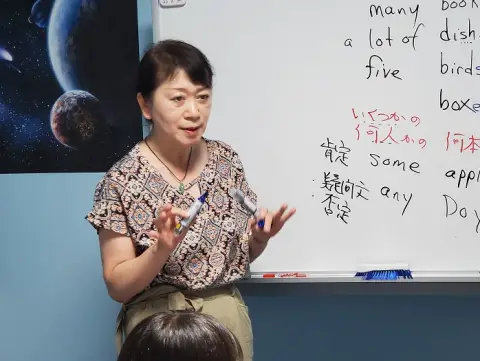 many
a lot of dish
five birds
boxe
いくつかの
何人かの 何本
肯定 some appl
疑問文 any Do y
否定